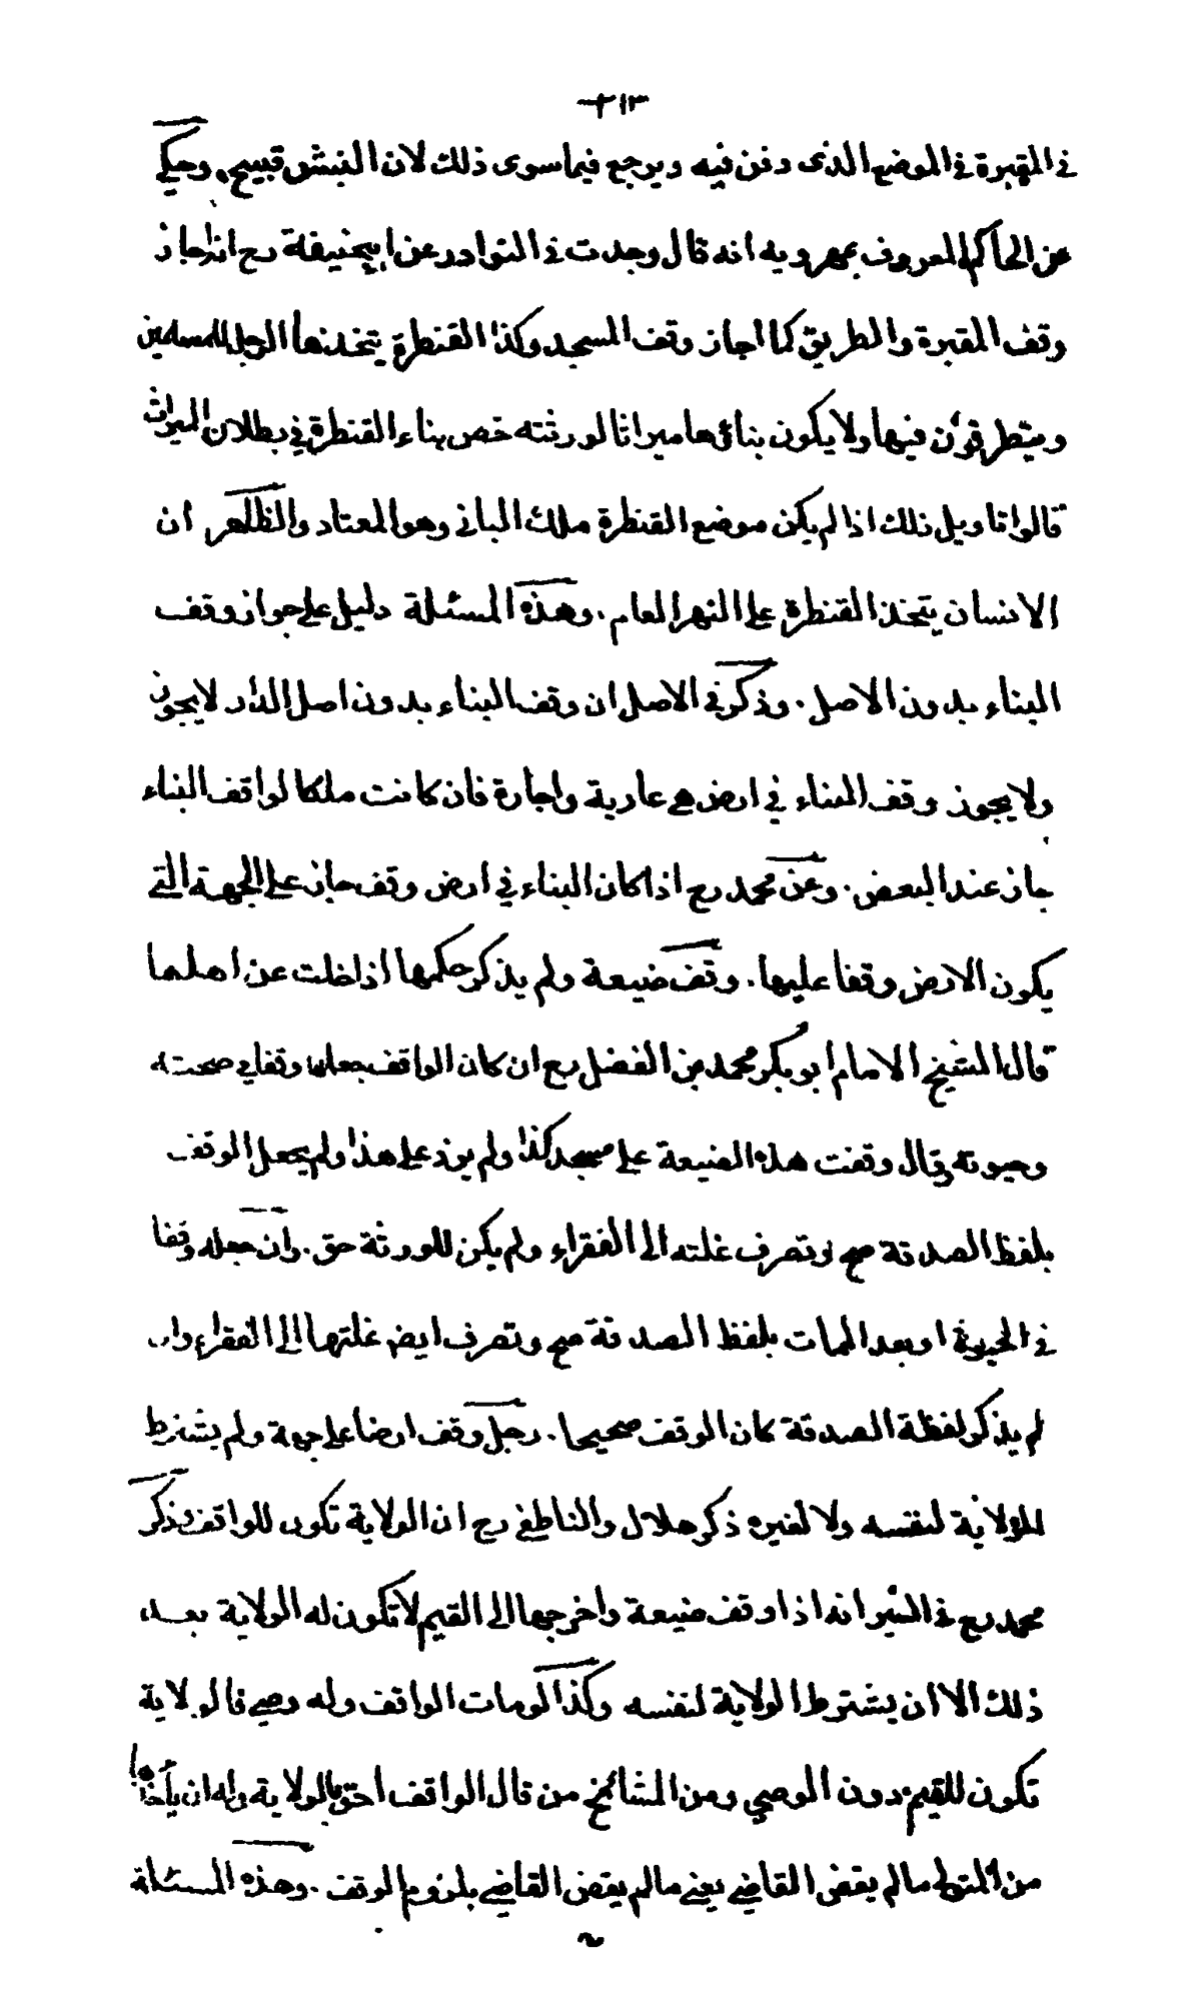 ٢١٣
في المقبرة في الموضع الذى دفن فيه ويرجع فيما سوى ذلك لان النبش قبيح. وحكي
عن الحاكم المعروف بمهرويه انه قال وجدت في النوادر عن ابيحنيفة رح انه اجاز
وقف المقبرة والطريق كما اجاز وقف المسجد وكذا القنطرة يتخذها الرجل للمسلمين
ويتطرقون فيها ولا يكون بناؤها ميراثا لورثته خص بناء القنطرة في بطلان الميراث
قالوا تاويل ذلك اذا لم يكن موضع القنطرة ملك الباني وهو المعتاد والظاهر ان
الانسان يتخذ القنطرة على النهر العام. وهذه المسئلة دليل على جواز وقف
البناء بدون الاصل. وذكر في الاصل ان وقف البناء بدون اصل الدار لا يجوز
ولا يجوز وقف البناء في ارض هي عارية واجارة فان كانت ملكا لواقف البناء
جاز عند البعض. وعن محمد رح اذا كان البناء في ارض وقف جاز على الجهة التي
يكون الارض وقفا عليها. وقف ضيعة ولم يذكر حكمها اذا خلت عن اهلها
قال الشيخ الامام ابو بكر محمد بن الفضل رح ان كان الواقف جعلها وقفا في صحته
وحيوته وقال وقفت هذه الضيعة على مسجد كذا ولم يزد على هذا ولم يجعل الوقف
بلفظ الصدقة صح وتصرف غلته الى الفقراء ولم يكن للورثة حق. وان جعله وقفا
في الحيوة او بعد الممات بلفظ الصدقة صح وتصرف ايض غلتها الى الفقراء وان
لم يذكر لفظة الصدقة كان الوقف صحيحا. رجل وقف ارضا على جهة ولم يشترط
الولاية لنفسه ولا لغيره ذكر هلال والناطفي رح ان الولاية تكون للواقف وذكر
محمد رح في السير انه اذا وقف ضيعة واخرجها الى القيم لا تكون له الولاية بعد
ذلك الا ان يشترط الولاية لنفسه وكذا لو مات الواقف وله وصي فالولاية
تكون للقيم دون الوصي ومن المشائخ من قال الواقف احق بالولاية وله ان يأخذها
من المتولي ما لم يقض القاضي يعني ما لم يقض القاضي بلزوم الوقف. وهذه المسئلة